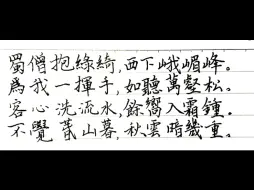 蜀僧抱綠綺,西下峨嵋峰。
爲我一揮手,如聽萬壑松。
客心洗流水,餘響入霜鐘。
不覺碧山暮,秋雲暗幾重。